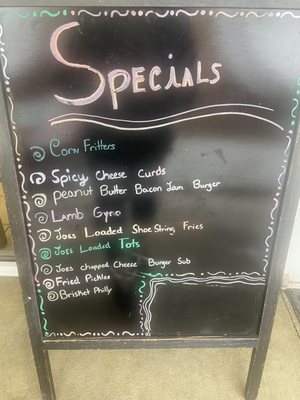 Specials
Corn Fritters
Spicy Cheese Curds
peanut Butter Bacon Jam Burger
Lamb Gyro
Joes Loaded Shoe String Fries
Joes Loaded Tots
Joes chopped Cheese Burger Sub
Fried Pickles
Brisket Philly